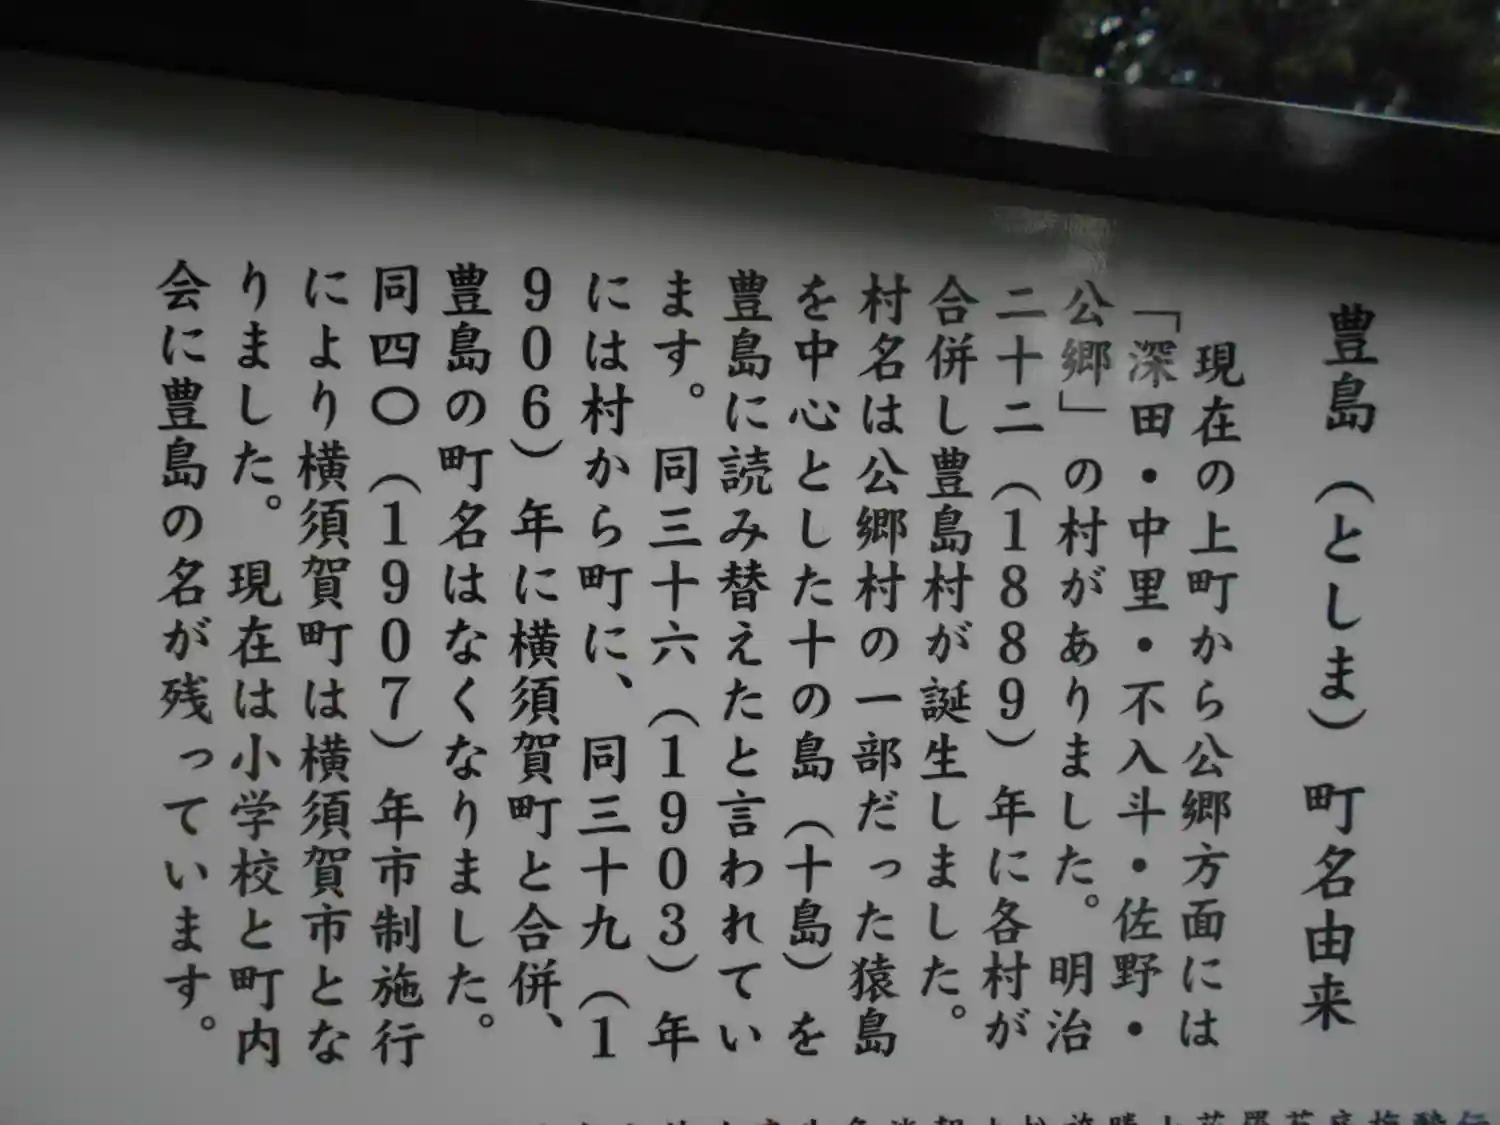 豊島（としま）町名由来
現在の上町から公郷方面には
「深田・中里・不入斗・佐野・
公郷」の村がありました。明治
二十二（1889）年に各村が
合併し豊島村が誕生しました。
村名は公郷村の一部だった猿島
を中心とした十の島（十島）を
豊島に読み替えたと言われてい
ます。同三十六（1903）年
には村から町に、同三十九（1
906）年に横須賀町と合併、
豊島の町名はなくなりました。
同四〇（1907）年市制施行
により横須賀町は横須賀市とな
りました。現在は小学校と町内
会に豊島の名が残っています。